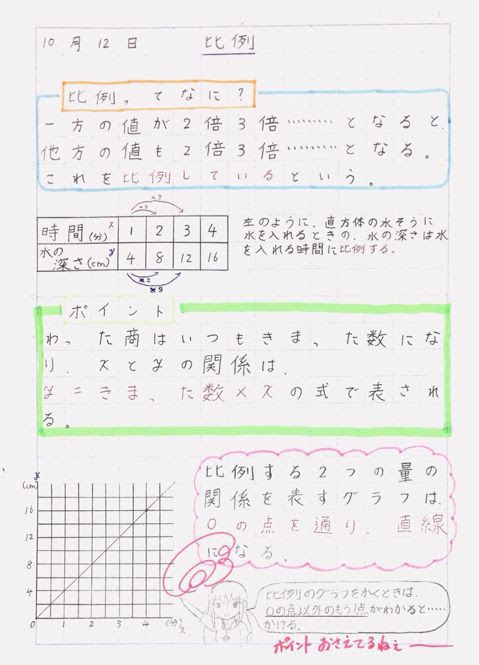 10月12日 比例
比例，てなに？
一方の値が2倍3倍………となると，
他方の値も2倍3倍………となる。
これを比例しているという。
×2 ×3
時間(分) x 1 2 3 4
水の深さ(cm) y 4 8 12 16
×2
×3
左のように，直方体の水そうに
水を入れるときの，水の深さは水
を入れる時間に比例する．
ポイント
わった商はいつもきまった数にな
り，xとyの関係は，
y＝きまった数×xの式で表され
る。
比例する2つの量の
関係を表すグラフは，
0の点を通り，直線
になる。
y
(cm)
16
12
8
4
0 1 2 3 4 5 (分) x
比例のグラフをかくときは，
0の点以外のもう1点がわかると……
かける．
ポイントおさえてるねぇ